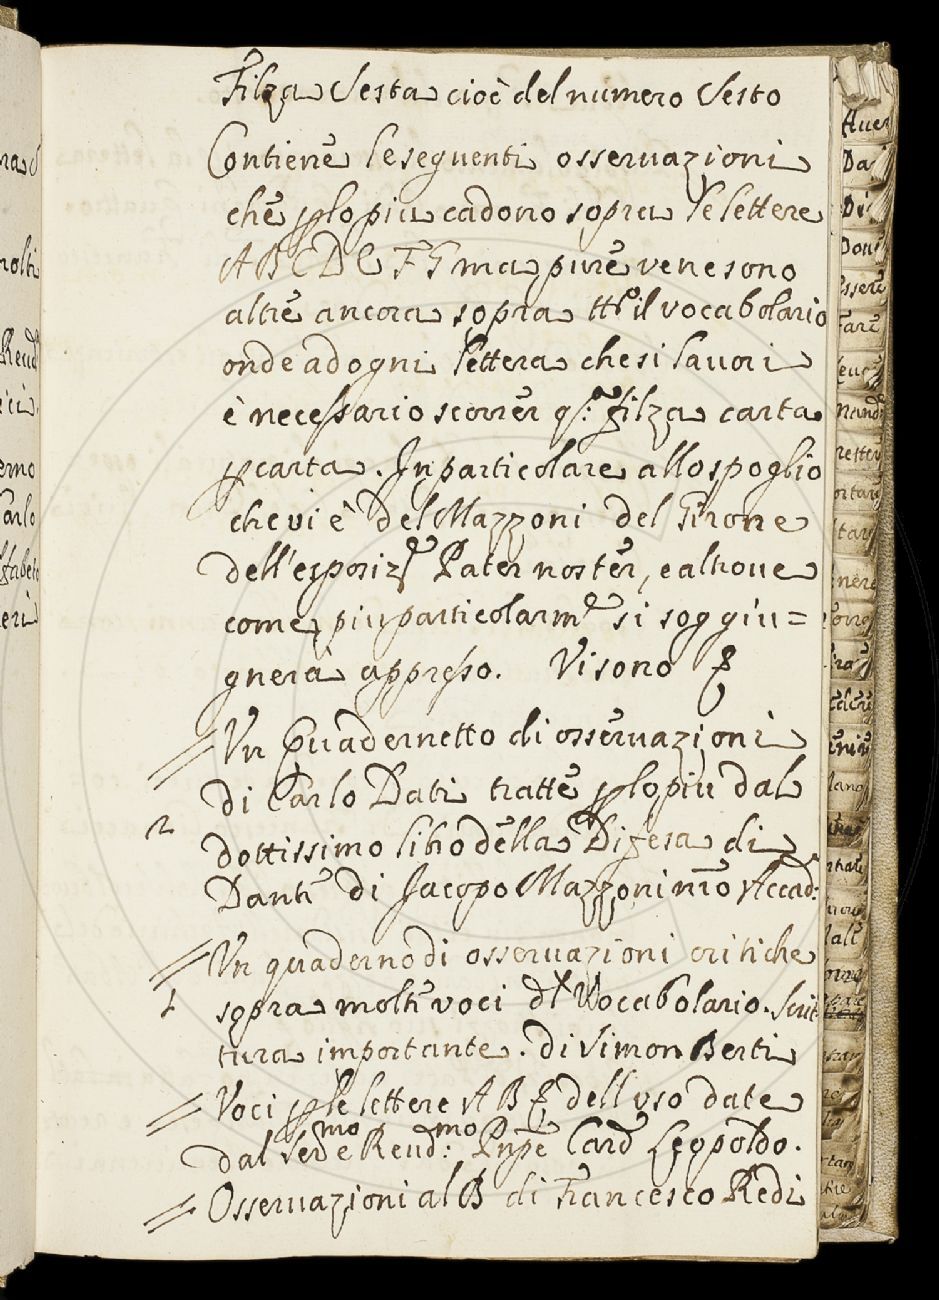 Filza Sesta cioè del numero Sesto
Contiene le seguenti osservazioni
che plo piu cadono sopra le lettere
A B C D E F G ma pure vene sono
altre ancora sopra tt.o il vocabolario
onde ad ogni lettera che si lavori
è necessario scorrer q.sta filza carta
p carta. In particolare allo spoglio
che vi è del Mazzoni del Girone
dell'esposiz.e Pater noster, e altrove
come piu particolarm.e si soggiu=
gnerà appresso. Vi sono
// Un Quadernetto di osservazioni
di Carlo Dati tratte plo piu dal
2
dottissimo libro della Difesa di
Dante di Jacopo Mazzoni nro Accad:
// Un quaderno di osservazioni critiche
1
sopra molte voci dl Vocabolario. Scrit-
tura importante. di Simon Berti
// Voci p le lettere A B dell uso date
dal Ser.mo e Reud:mo Pnpe Card Leopoldo.
// Osservazioni al B di Francesco Redi
molti
Reud
erno
Carlo
Aver
Da
Di
Don
Essere
Fare